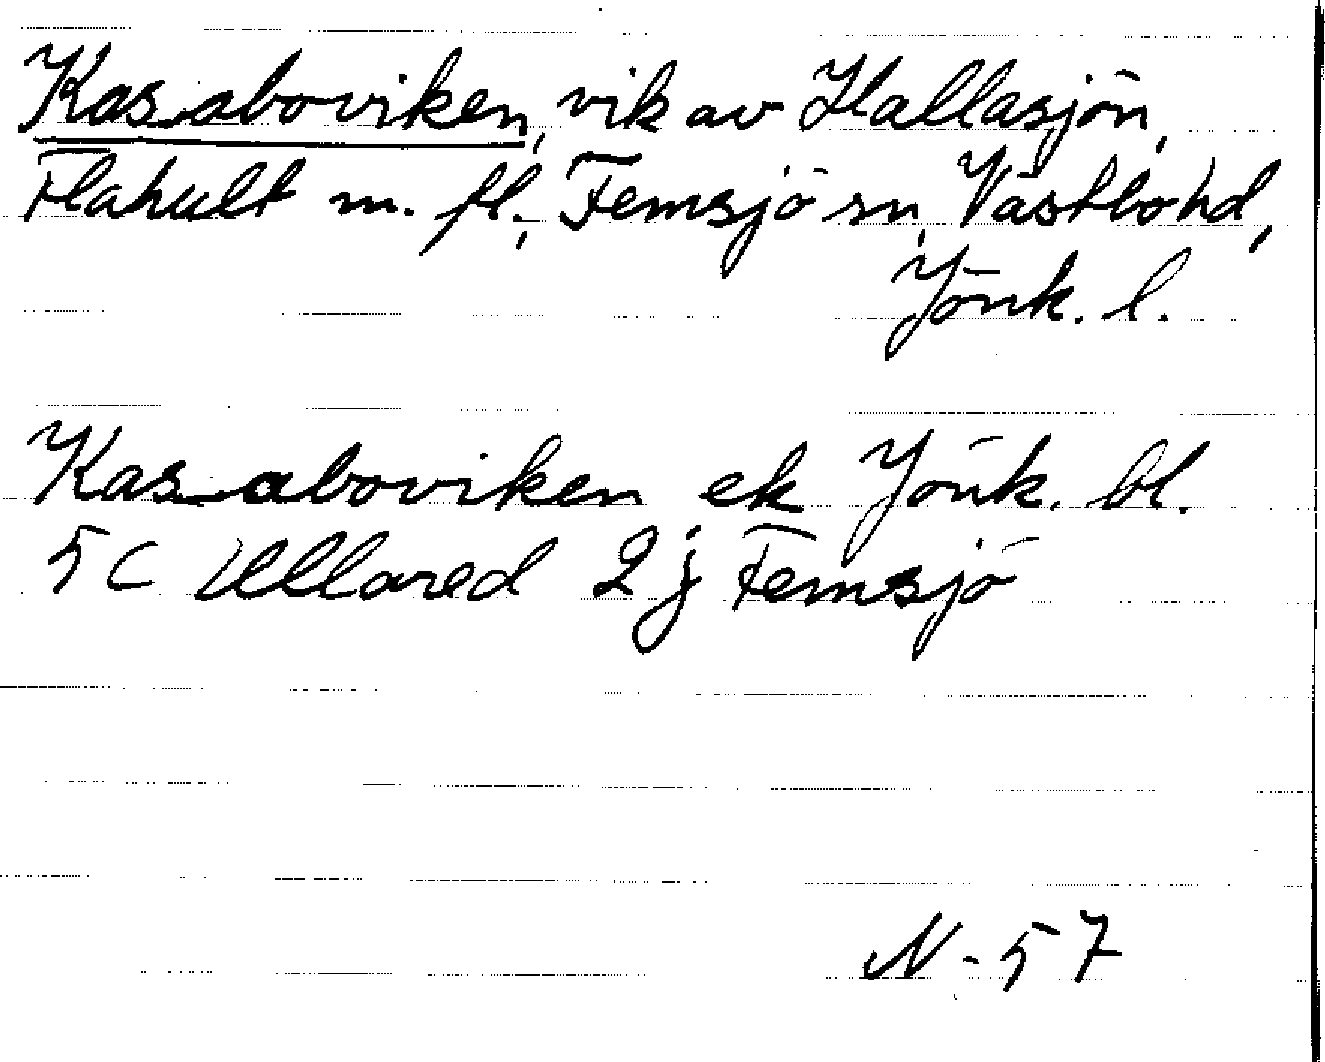 Kasaboviken, vik av Hallasjön,
Flahult m. fl., Femsjö sn, Västbo hd,
Jönk. l.
Kasaboviken ek Jönk. bl.
5 C Ullared 2 j Femsjö
N-57